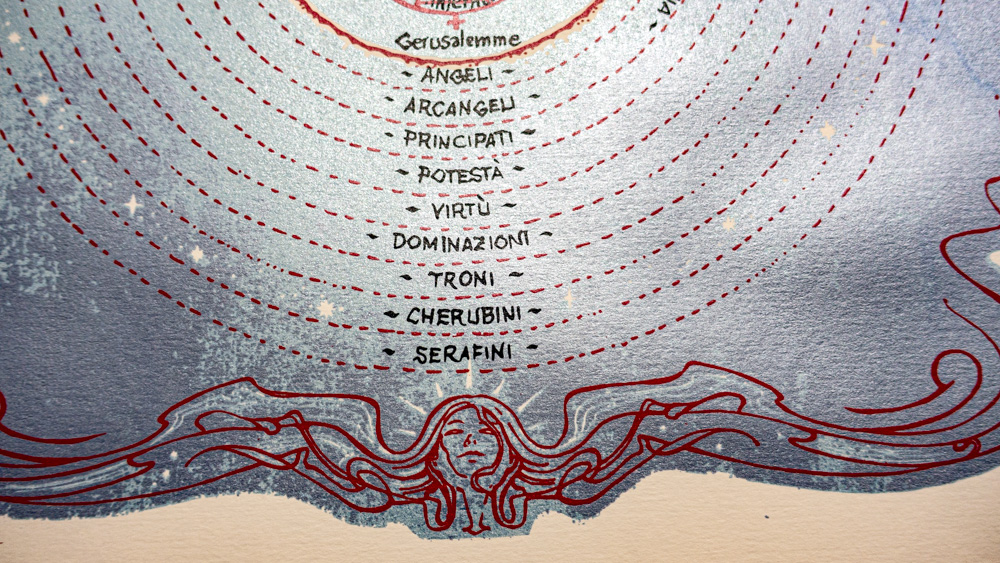 Gerusalemme
~ ANGELI ~
~ ARCANGELI ~
~ PRINCIPATI ~
~ POTESTÀ ~
~ VIRTÙ ~
~ DOMINAZIONI ~
~ TRONI ~
~ CHERUBINI ~
~ SERAFINI ~